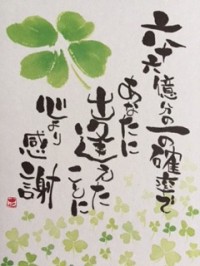 六十六億分の一の確率で
あなたに
出逢えたことに
心より感謝